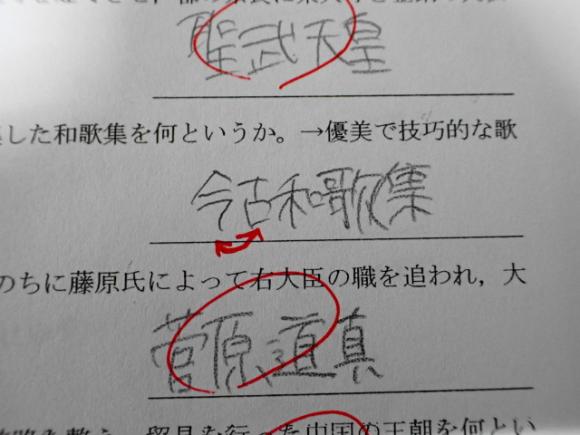 聖武天皇
した和歌集を何というか。→優美で技巧的な歌
今古和歌集
のちに藤原氏によって右大臣の職を追われ，大
菅原道真
を行った中国の王朝を何とい